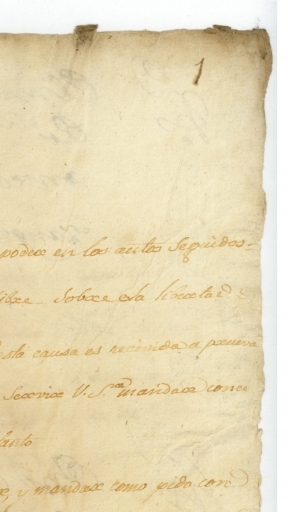 1
poder en los autos seguidos
libre sobre la libertad
esta causa es recivida a prueva
Servir V. S.ria mandar conce
tanto
, y mandar como pido con